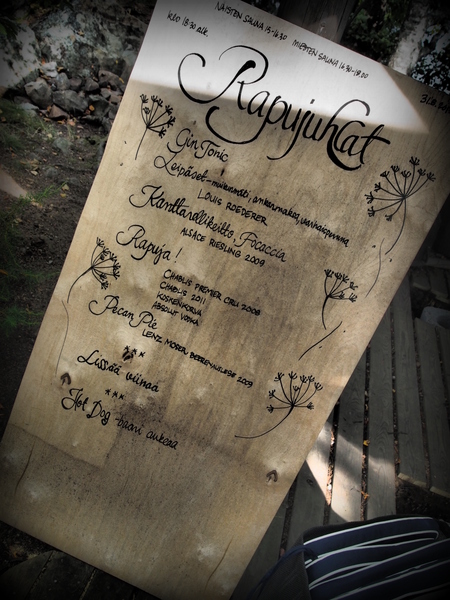 NAISTEN SAUNA 15-16.30 MIESTEN SAUNA 16.30-18.00
KLO 18.30 alk.
Rapujuhlat
Gin Tonic
Leipäset-muikunmäti, ankanmaksa, vanhaigouda
LOUIS ROEDERER
Kanttarellikeitto, Focaccia
ALSACE RIESLING 2009
Rapuja!
CHABLIS PREMIER CRU 2008
CHABLIS 2011
KOSKENKORVA
ABSOLUT VODKA
Pecan Pie
LENZ MOSER BEERENAUSLESE 2009
***
Lissää viinaa
***
Hot Dog -baari aukeaa